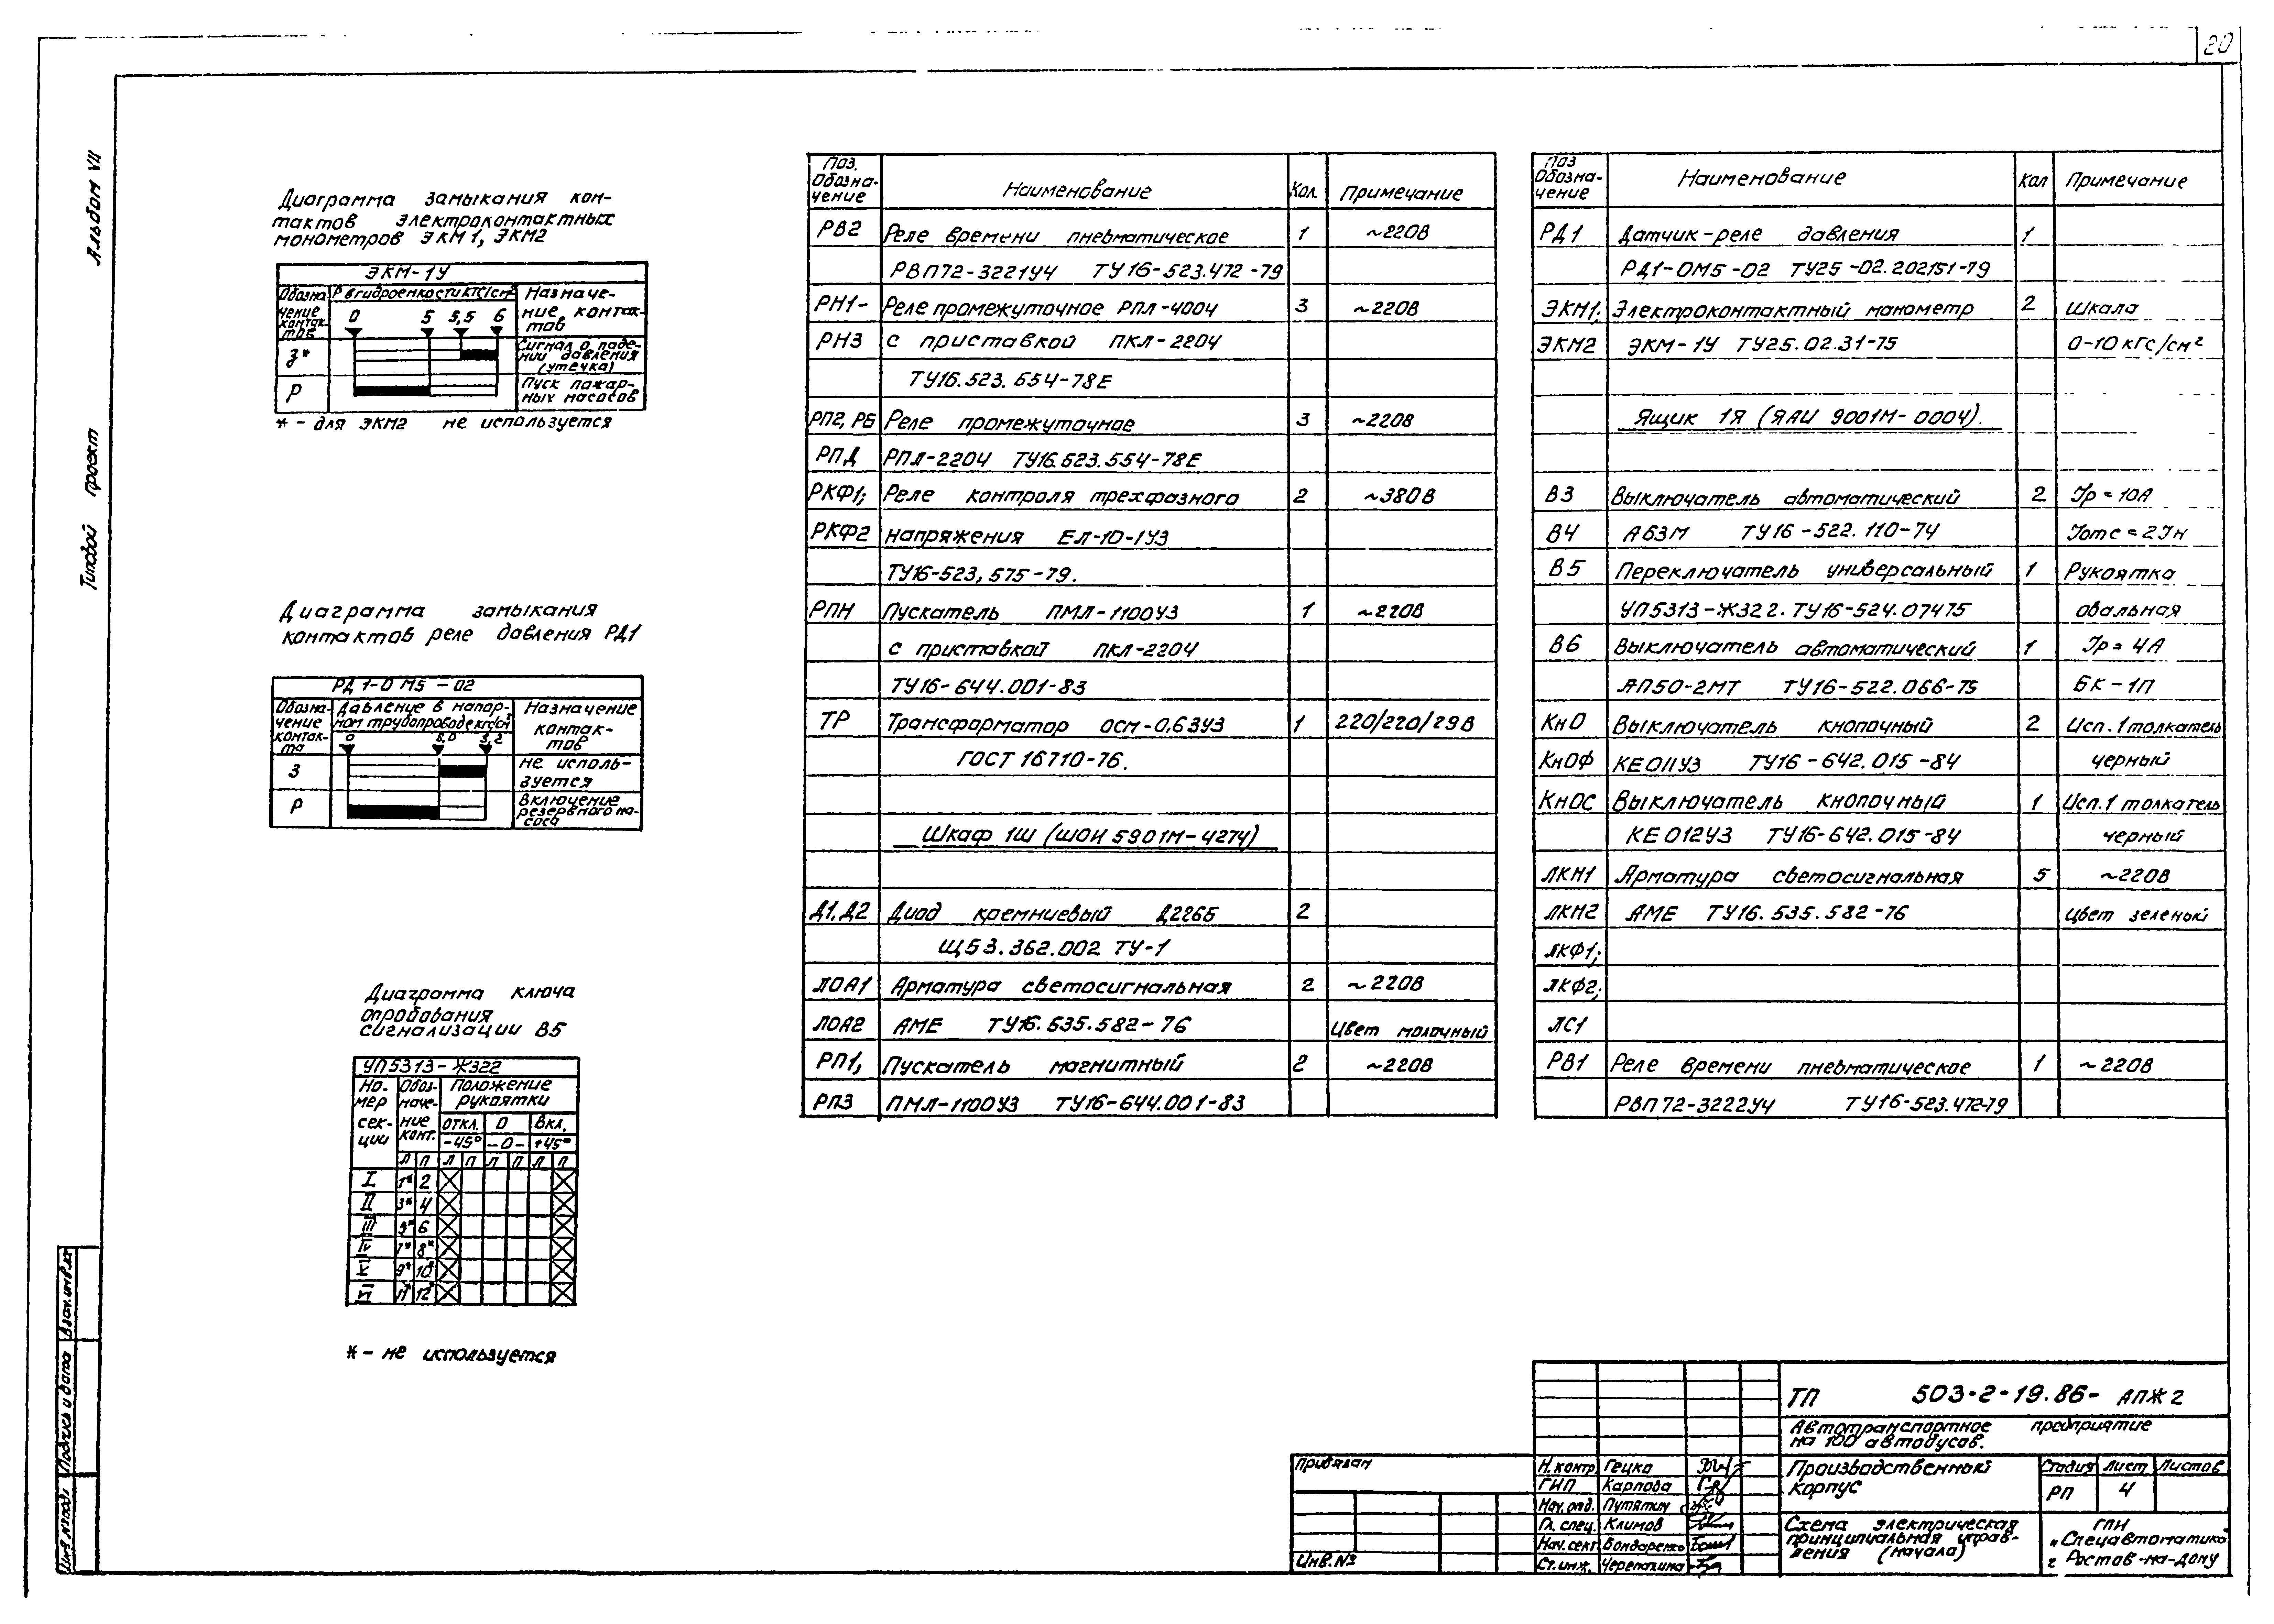 20
Альбом VII
Типовой проект
Диаграмма замыкания кон-
тактов электроконтактных
манометров ЭКМ1, ЭКМ2
ЭКМ-1У
Обозна-
чение
контак-
тов
Р в гидроемкости кгс/см²
0 5 5,5 6
Назначе-
ние контак-
тов
З*
Сигнал о паде-
нии давления
(утечка)
Р
Пуск пожар-
ных насосов
* - для ЭКМ2 не используется
Диаграмма замыкания
контактов реле давления РД1
РД1-ОМ5-02
Обозна-
чение
контак-
та
Давление в напор-
ном трубопроводе кгс/см²
0
Назначение
контак-
тов
З
не исполь-
зуется
Р
Включение
резервного на-
соса
Диаграмма ключа
опробования
сигнализации В5
УП5313-Ж322
Но-
мер
сек-
ции
Обоз-
наче-
ние
конт.
Положение
рукоятки
ОТКЛ. 0 ВКЛ.
-45° -0- +45°
Л П Л П Л П Л П
I 1* 2
II 3* 4
III 5* 6
IV 7* 8*
V 9* 10*
VI 11* 12*
* - не используется
Поз.
Обозна-
чение
Наименование
Кол.
Примечание
РВ2 Реле времени пневматическое 1 ~220В
РВП72-3221У4 ТУ16-523.472-79
РН1- Реле промежуточное РПЛ-4004 3 ~220В
РН3 с приставкой ПКЛ-2204
ТУ16.523.654-78Е
РП2, РБ Реле промежуточное 3 ~220В
РПД РПЛ-2204 ТУ16.523.554-78Е
РКФ1; Реле контроля трехфазного 2 ~380В
РКФ2 напряжения ЕЛ-10-1У3
ТУ16-523,575-79.
РПН Пускатель ПМЛ-1100У3 1 ~220В
с приставкой ПКЛ-2204
ТУ16-644.001-83
ТР Трансформатор ОСМ-0,63У3 1 220/220/29В
ГОСТ 16710-76.
Шкаф 1Ш (ШОИ 5901М-4274)
Д1, Д2 Диод кремниевый Д226Б 2
Щ53.362.002 ТУ-1
ЛОА1 Арматура светосигнальная 2 ~220В
ЛОА2 АМЕ ТУ16.535.582-76 Цвет молочный
РП1, Пускатель магнитный 2 ~220В
РП3 ПМЛ-1100У3 ТУ16-644.001-83
Поз
Обозна-
чение
Наименование
Кол
Примечание
РД1 Датчик-реле давления 1
РД1-ОМ5-02 ТУ25-02.202151-79
ЭКМ1; Электроконтактный манометр 2 Шкала
ЭКМ2 ЭКМ-1У ТУ25.02.31-75 0-10 кгс/см²
Ящик 1Я (ЯАИ 9001М-0004).
В3 Выключатель автоматический 2 Jр = 10А
В4 А63М ТУ16-522.110-74 Jотс = 2Jн
В5 Переключатель универсальный 1 Рукоятка
УП5313-Ж322. ТУ16-524.07475 овальная
В6 Выключатель автоматический 1 Jр = 4А
АП50-2МТ ТУ16-522.066-75 БК-1П
КнО Выключатель кнопочный 2 Исп.1 толкатель
КнОФ КЕ011У3 ТУ16-642.015-84 черный
КнОС Выключатель кнопочный 1 Исп.1 толкатель
КЕ012У3 ТУ16-642.015-84 черный
ЛКН1 Арматура светосигнальная 5 ~220В
ЛКН2 АМЕ ТУ16.535.582-76 Цвет зеленый
ЛКФ1;
ЛКФ2;
ЛС1
РВ1 Реле времени пневматическое 1 ~220В
РВП72-3222У4 ТУ16-523.472-79
ТП 503-2-19.86- АПЖ2
Автотранспортное предприятие
на 100 автобусов.
Производственный
корпус
Стадия Лист Листов
РП 4
Схема электрическая
принципиальная управ-
ления (начало)
ГПИ
"Спецавтоматика
г Ростов-на-Дону
Н.контр. Гецко
ГИП Карпова
Нач.отд. Путятин
Гл. спец. Климов
Нач.сект Бондаренко
Ст.инж. Черепахина
Привязан
Инв.№
Взам.инв.№
Подпись и дата
Инв.№ подл